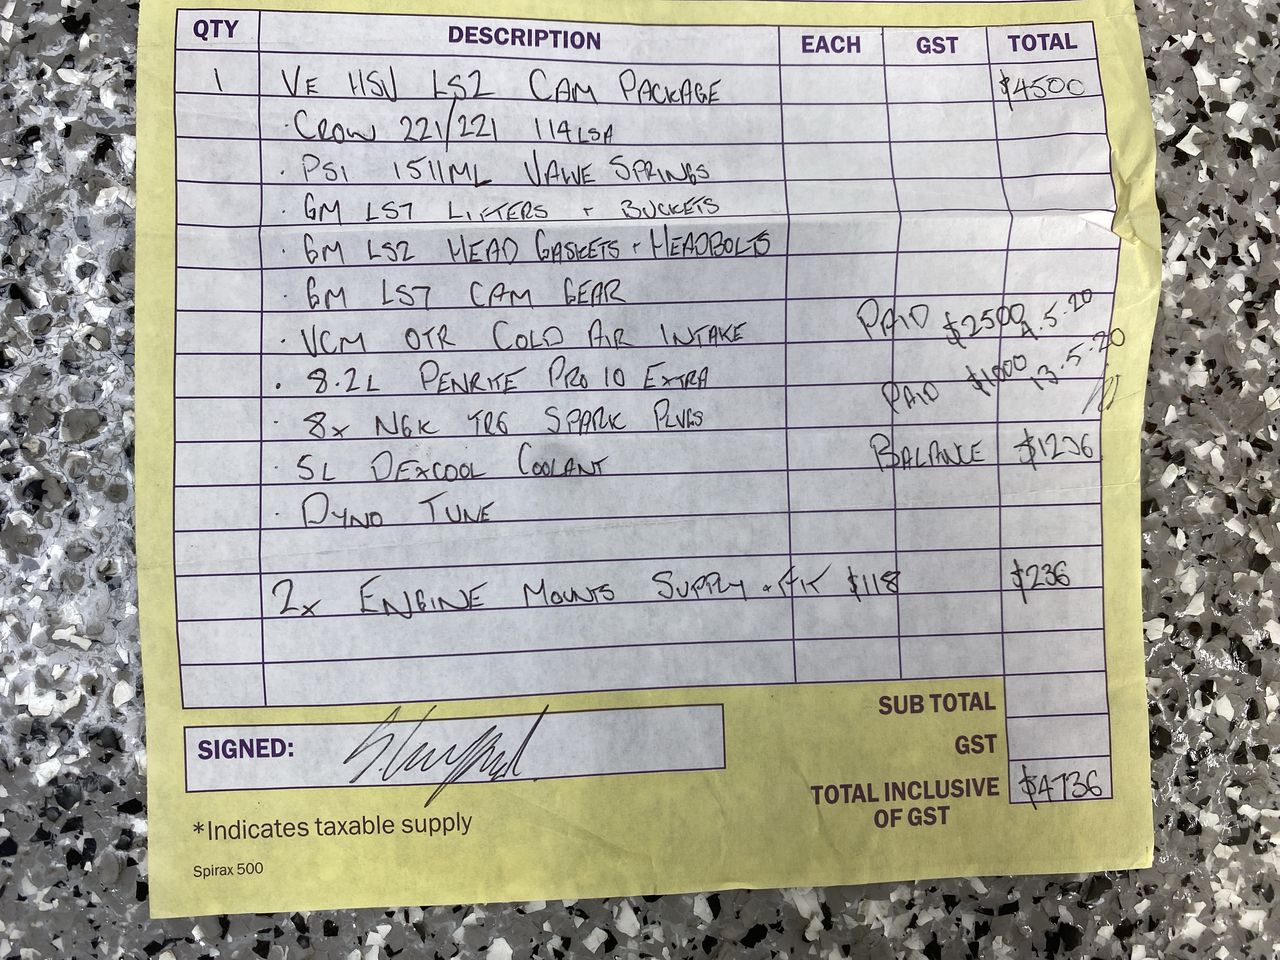 QTY DESCRIPTION EACH GST TOTAL
1 VE HSV LS2 CAM PACKAGE $4500
· CROW 221/221 114LSA
· PSI 1511ML VALVE SPRINGS
· GM LS7 LIFTERS + BUCKETS
· GM LS2 HEAD GASKETS + HEADBOLTS
· GM LS7 CAM GEAR
· VCM OTR COLD AIR INTAKE PAID $2500 4.5.20
· 8.2L PENRITE PRO 10 EXTRA PAID $1000 13.5.20
· 8x NGK TR6 SPARK PLUGS
· 5L DEXCOOL COOLANT BALANCE $1236
· DYNO TUNE
2x ENGINE MOUNTS SUPPLY + FIT $118 $236
SUB TOTAL
SIGNED: GST
TOTAL INCLUSIVE OF GST $4736
*Indicates taxable supply
Spirax 500